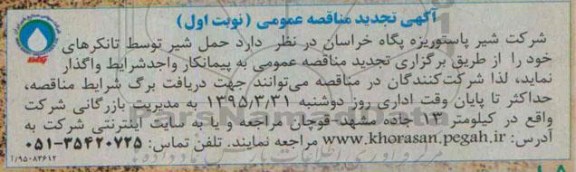 آگهی تجدید مناقصه عمومی (نوبت اول)
شرکت شیر پاستوریزه پگاه خراسان در نظر دارد حمل شیر توسط تانکرهای
خود را از طریق برگزاری تجدید مناقصه عمومی به پیمانکار واجدشرایط واگذار
نماید، لذا شرکت‌کنندگان در مناقصه می‌توانند جهت دریافت برگ شرایط مناقصه،
حداکثر تا پایان وقت اداری روز دوشنبه ۱۳۹۵/۳/۳۱ به مدیریت بازرگانی شرکت
واقع در کیلومتر ۱۳ جاده مشهد- قوچان مراجعه و یا به سایت اینترنتی شرکت به
آدرس: www.khorasan.pegah.ir مراجعه نمایند. تلفن تماس: ۳۵۴۲۰۷۲۵-۰۵۱
۱/۹۵۰۸۲۶۱۲